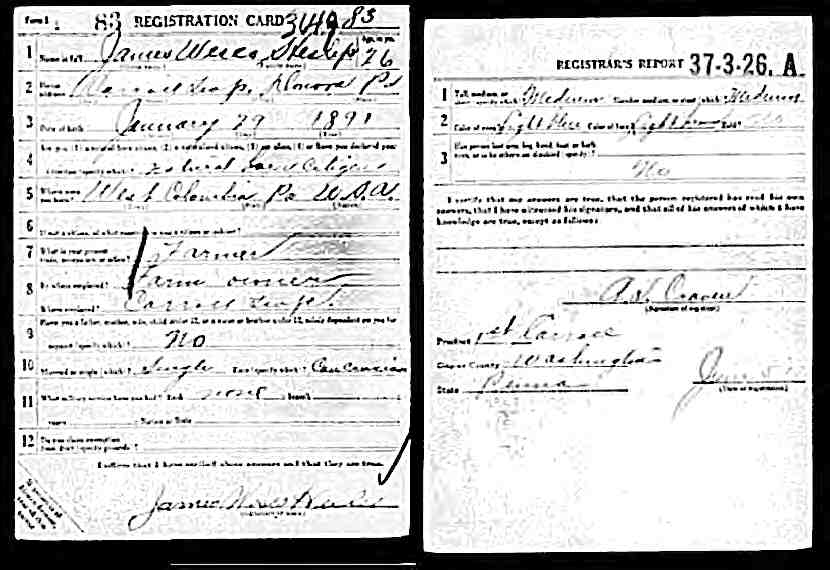 Form 1 83 REGISTRATION CARD 3149 83
1 Name in full James 26
2 Home address Carroll Twp. Donora Pa
3 Date of birth January 29 1891
4 Are you (1) a natural born citizen, (2) a naturalized citizen, (3) an alien, (4) or have you declared your
intention (specify which)? natural born citizen
5 Where were you born? West Columbia Pa U.S.A.
6 If not a citizen, of what country are you a citizen or subject?
7 What is your present trade, occupation, or office? Farmer
8 By whom employed? Farm owner
Where employed? Carroll Twp
9 Have you a father, mother, wife, child under 12, or a sister or brother under 12, solely dependent on you for
support (specify which)? No
10 Married or single (which)? Single Race (specify which)? Caucasian
11 What military service have you had? Rank none branch
years Nation or State
12 Do you claim exemption from draft (specify grounds)?
I affirm that I have verified above answers and that they are true.
James
REGISTRAR'S REPORT 37-3-26. A
1 Tall, medium, or short (specify which)? Medium Slender, medium, or stout (which)? Medium
2 Color of eyes? Light Blue Color of hair? Light brown Bald? No
3 Has person lost arm, leg, hand, foot, or both eyes, or is he otherwise disabled (specify)?
No
I certify that my answers are true, that the person registered has read his own
answers, that I have witnessed his signature, and that all of his answers of which I have
knowledge are true, except as follows:
(Signature of registrar)
Precinct 1st Carroll
City or County Washington
State Penna June 5
(Date of registration)